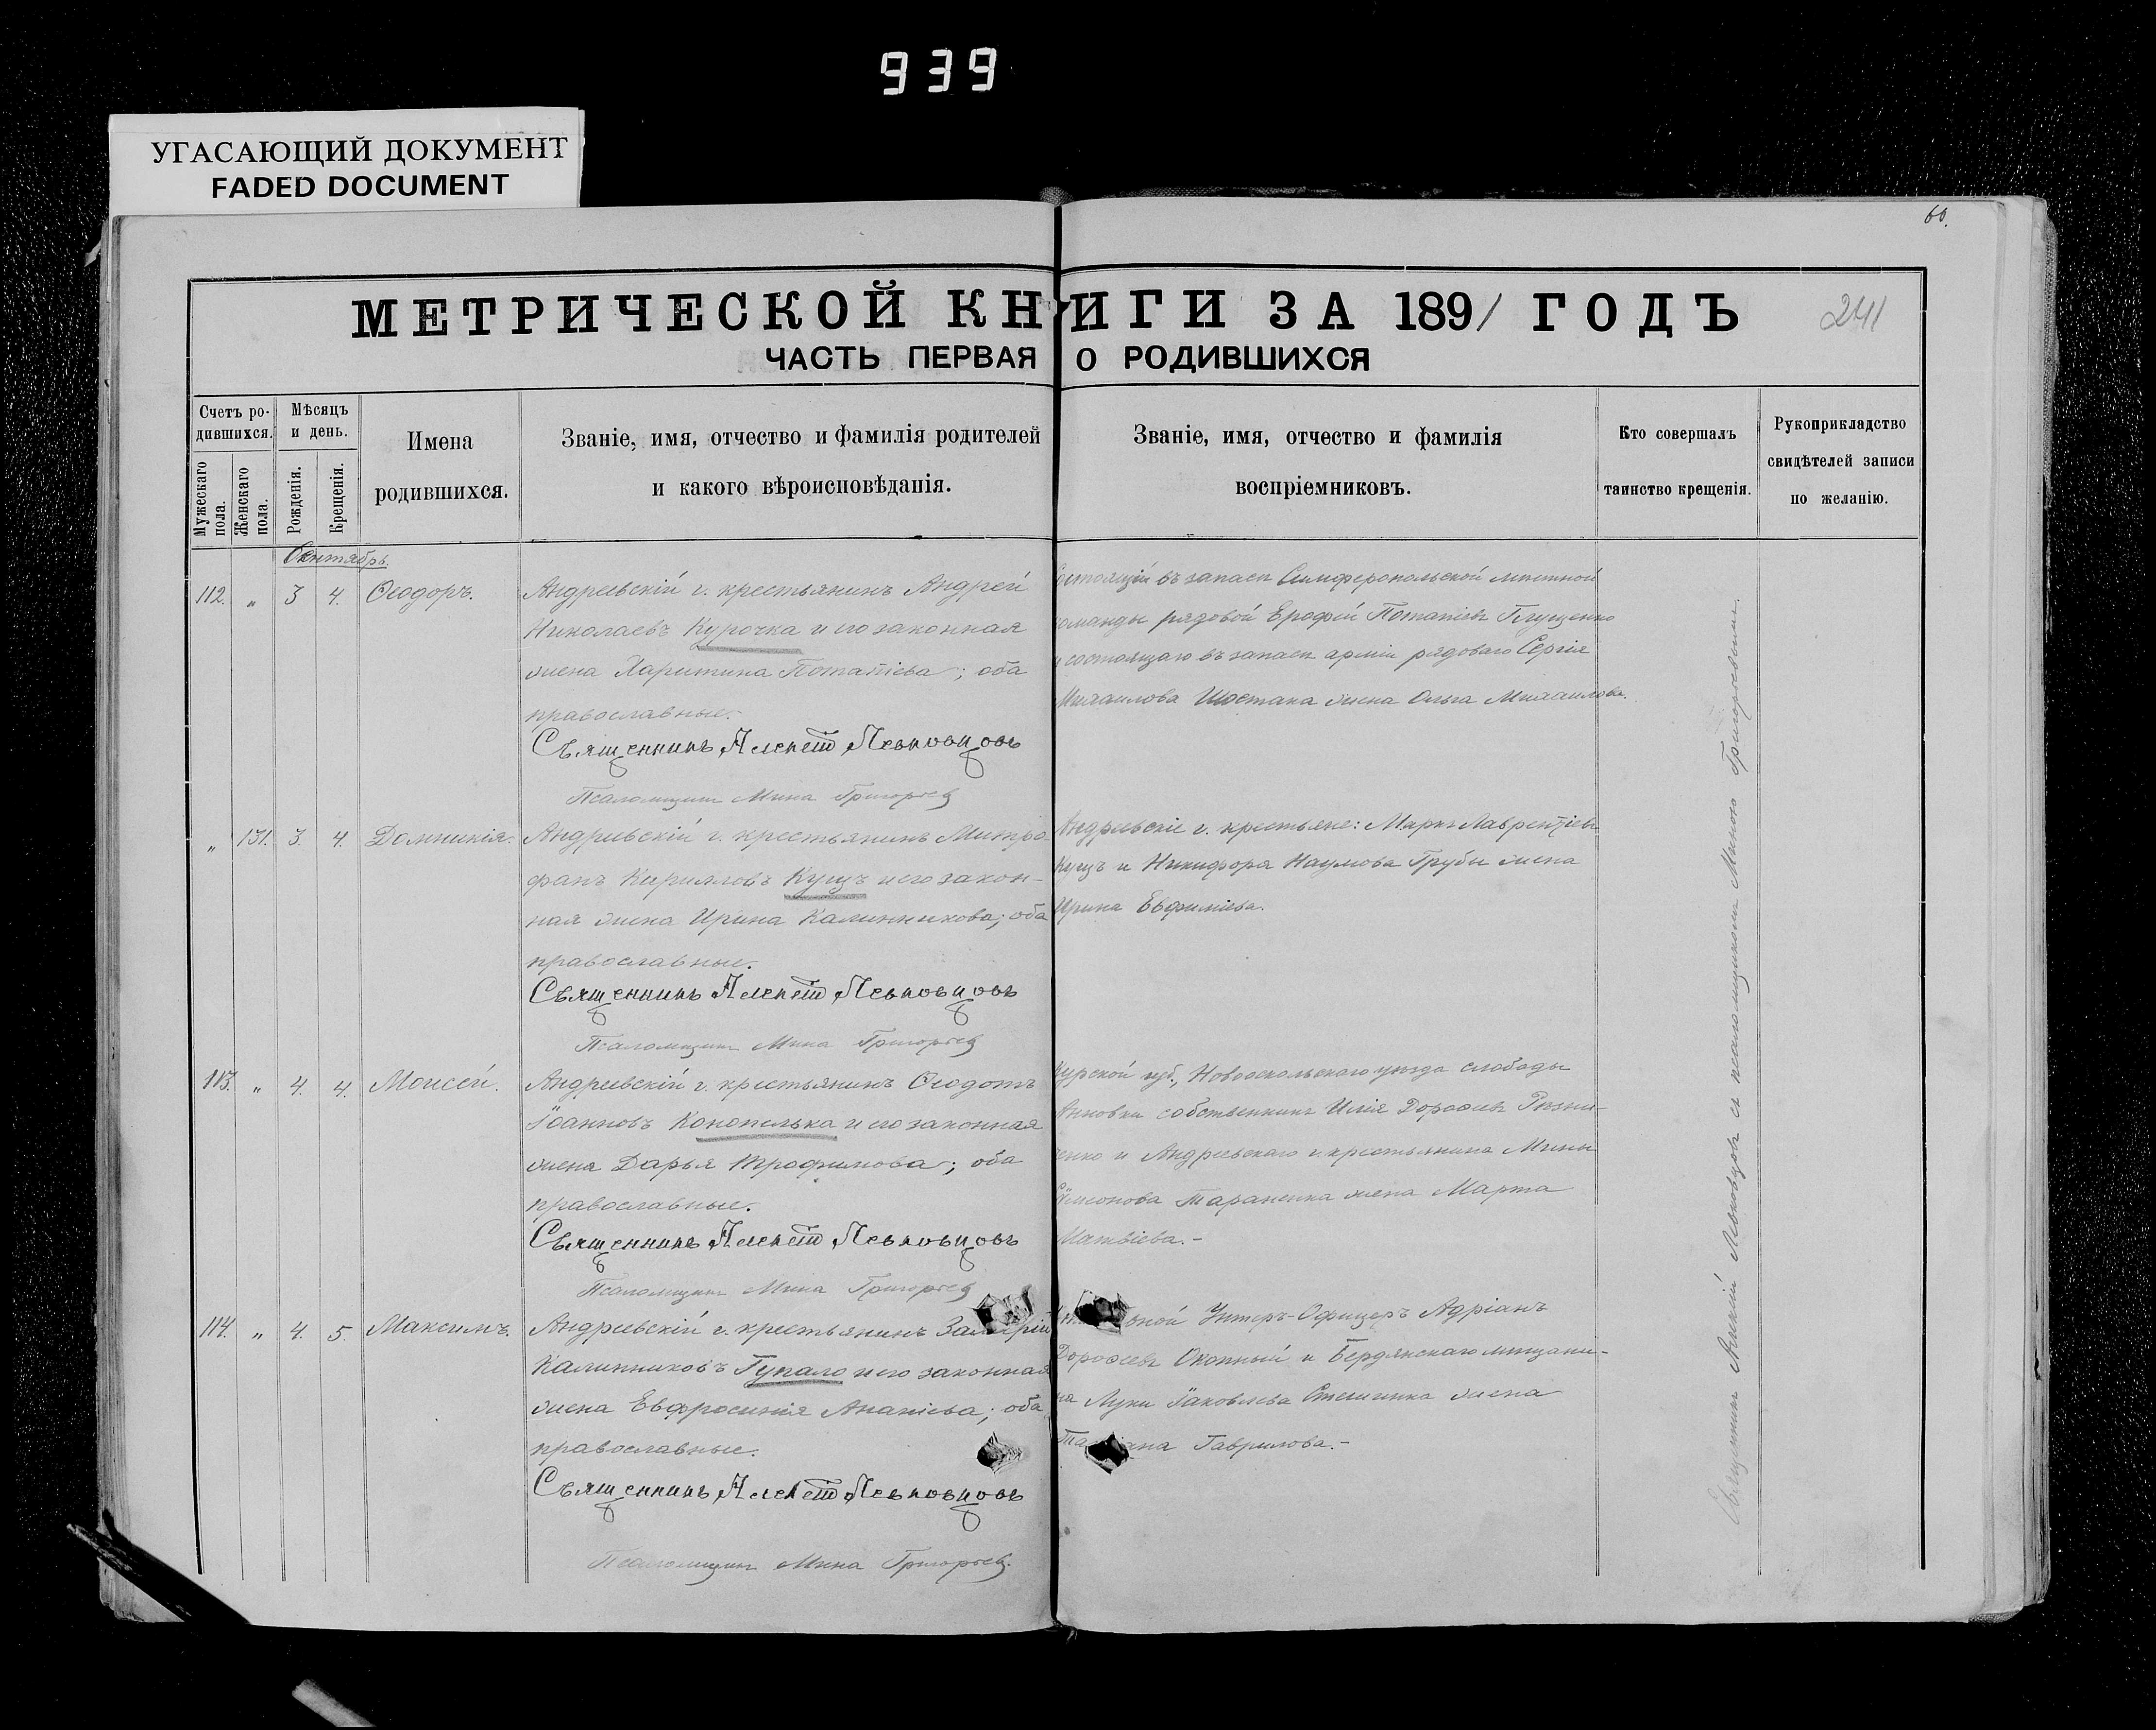 939
УГАСАЮЩИЙ ДОКУМЕНТ
FADED DOCUMENT
60.
МЕТРИЧЕСКОЙ КНИГИ ЗА 1891 ГОДЪ
241
ЧАСТЬ ПЕРВАЯ О РОДИВШИХСЯ
Счетъ ро-
дившихся.
Мужескаго пола.
Женскаго пола.
Мѣсяцъ
и день.
Рожденія.
Крещенія.
Имена
родившихся.
Званіе, имя, отчество и фамилія родителей
и какого вѣроисповѣданія.
Званіе, имя, отчество и фамилія
воспріемниковъ.
Кто совершалъ
таинство крещенія.
Рукоприкладство
свидѣтелей записи
по желанію.
Сентябрь.
112. „ 3 4. Ѳеодоръ.
Андреевскій г. крестьянинъ Андрей
Николаевъ Курочка и его законная
жена Харитина Потапіева; оба
православные.
Священникъ Алексій Левковцовъ
Псаломщикъ Мина Григорьев
остоящій въ запасѣ Симферопольской мѣстной
оманды рядовой Ерофѣй Потапіевъ Глущенко
и состоящаго въ запасѣ арміи рядоваго Сергія
Михаилова Шостака жена Ольга Михаилова.
„ 131. 3. 4. Домникія.
Андреевскій г. крестьянинъ Митро-
фанъ Кирилловъ Кущъ и его закон-
ная жена Ирина Калинникова; оба
православные.
Священникъ Алексій Левковцовъ
Псаломщикъ Мина Григорьев
Андреевскіе г. крестьяне: Маркъ Лаврентіевъ
Кущъ и Никифора Наумова Грубы жена
Ирина Евфиміева.
113. „ 4. 4. Моисей.
Андреевскій г. крестьянинъ Ѳеодотъ
Іоанновъ Конопелька и его законная
жена Дарья Трофимова; оба
православные.
Священникъ Алексій Левковцовъ
Псаломщикъ Мина Григорьев
Курской губ., Новооскольскаго уѣзда слободы
собственникъ Илія Дороѳеевъ Рѣзни-
енко и Андреевскаго г. крестьянина Мины
Симонова Тараненка жена Марта
Матвіева.-
114. „ 4. 5. Максимъ.
Андреевскій г. крестьянинъ
Калинниковъ Гупало и его законная
жена Евфросинія Ананіева; оба
православные.
Священникъ Алексій Левковцовъ
Псаломщикъ Мина Григорьев.
Унтеръ-Офицеръ Адріанъ
Дороѳеевъ Окопный и Бердянскаго мѣщани-
на Луки Іаковлева Стешенка жена
Гаврилова.-
Священникъ Алексій Левковцовъ съ псаломщикомъ Миною Григорьевымъ.